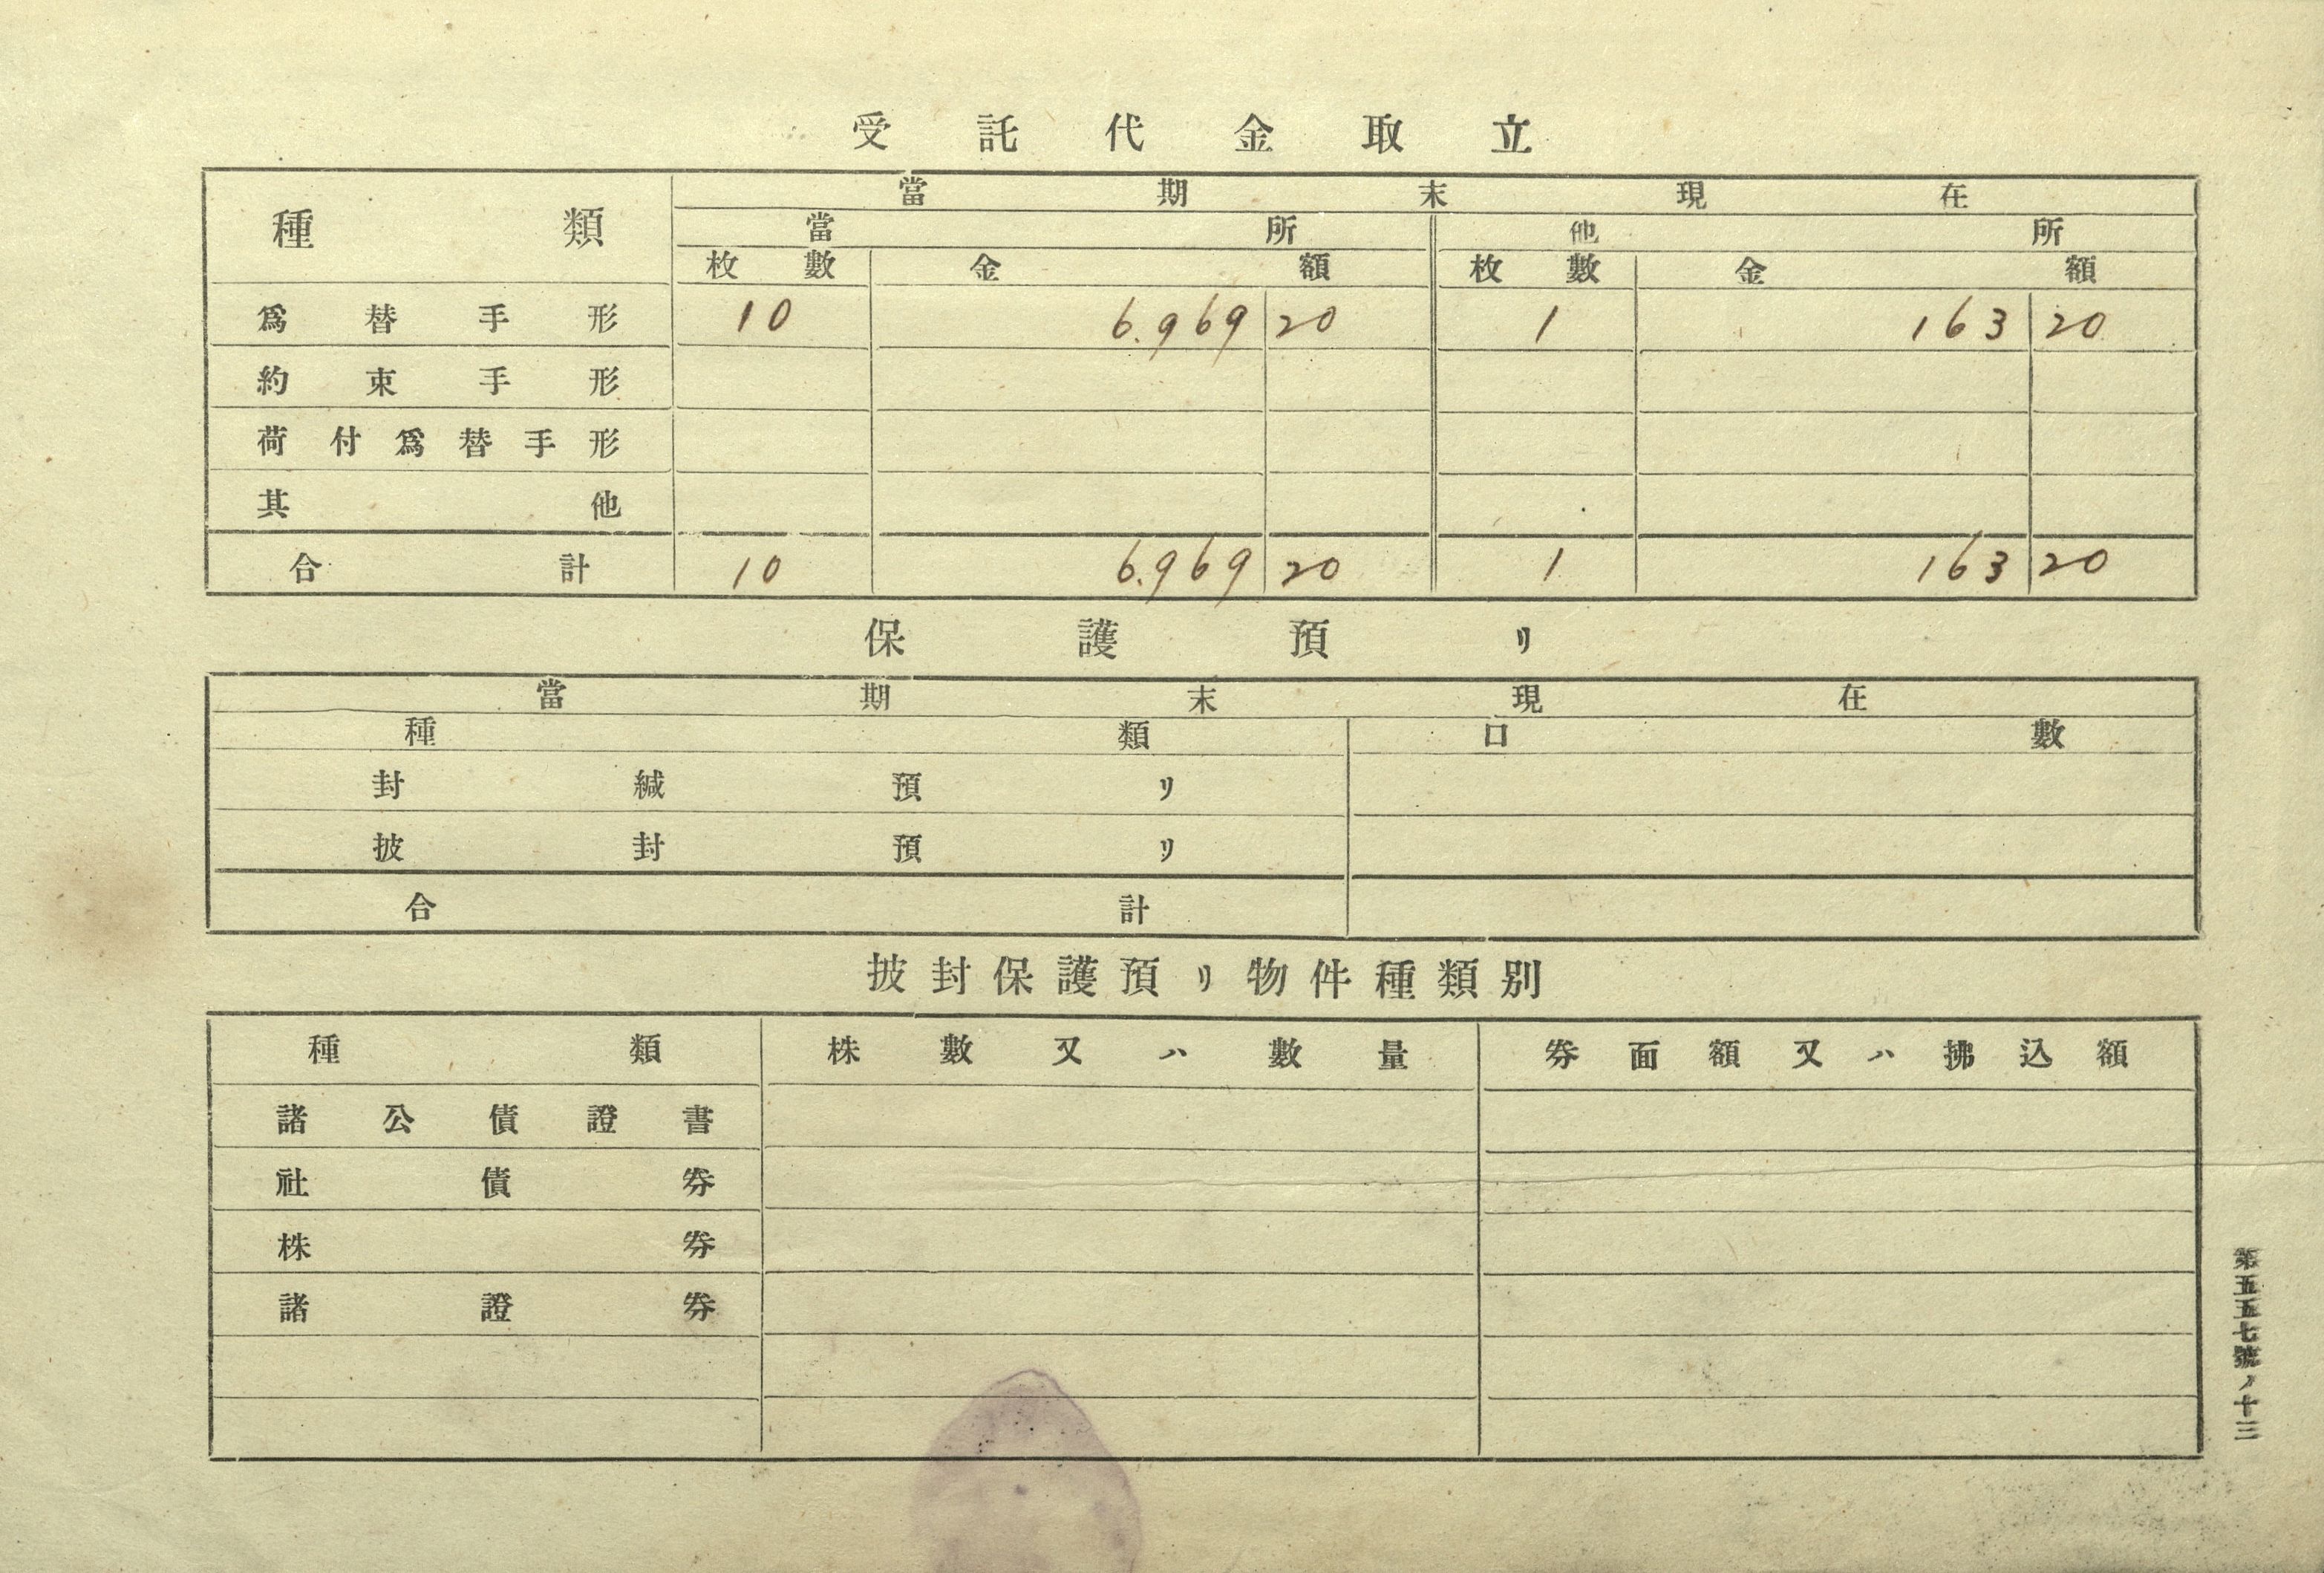 受託代金取立
種類 當期末現在
當所 他所
枚數 金額 枚數 金額
爲替手形 10 6.969 20 1 163 20
約束手形
荷付爲替手形
其他
合計 10 6.969 20 1 163 20
保護預リ
當期末現在
種類 口數
封緘預リ
披封預リ
合計
披封保護預リ物件種類別
種類 株數又ハ數量 券面額又ハ拂込額
諸公債證書
社債券
株券
諸證券
第五五七號ノ十三